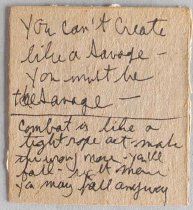 You can't Create
like a Savage -
You must be
the Savage -
Combat is like a
tight rope act make
wrong move - you'll
fall -
you may fall anyway